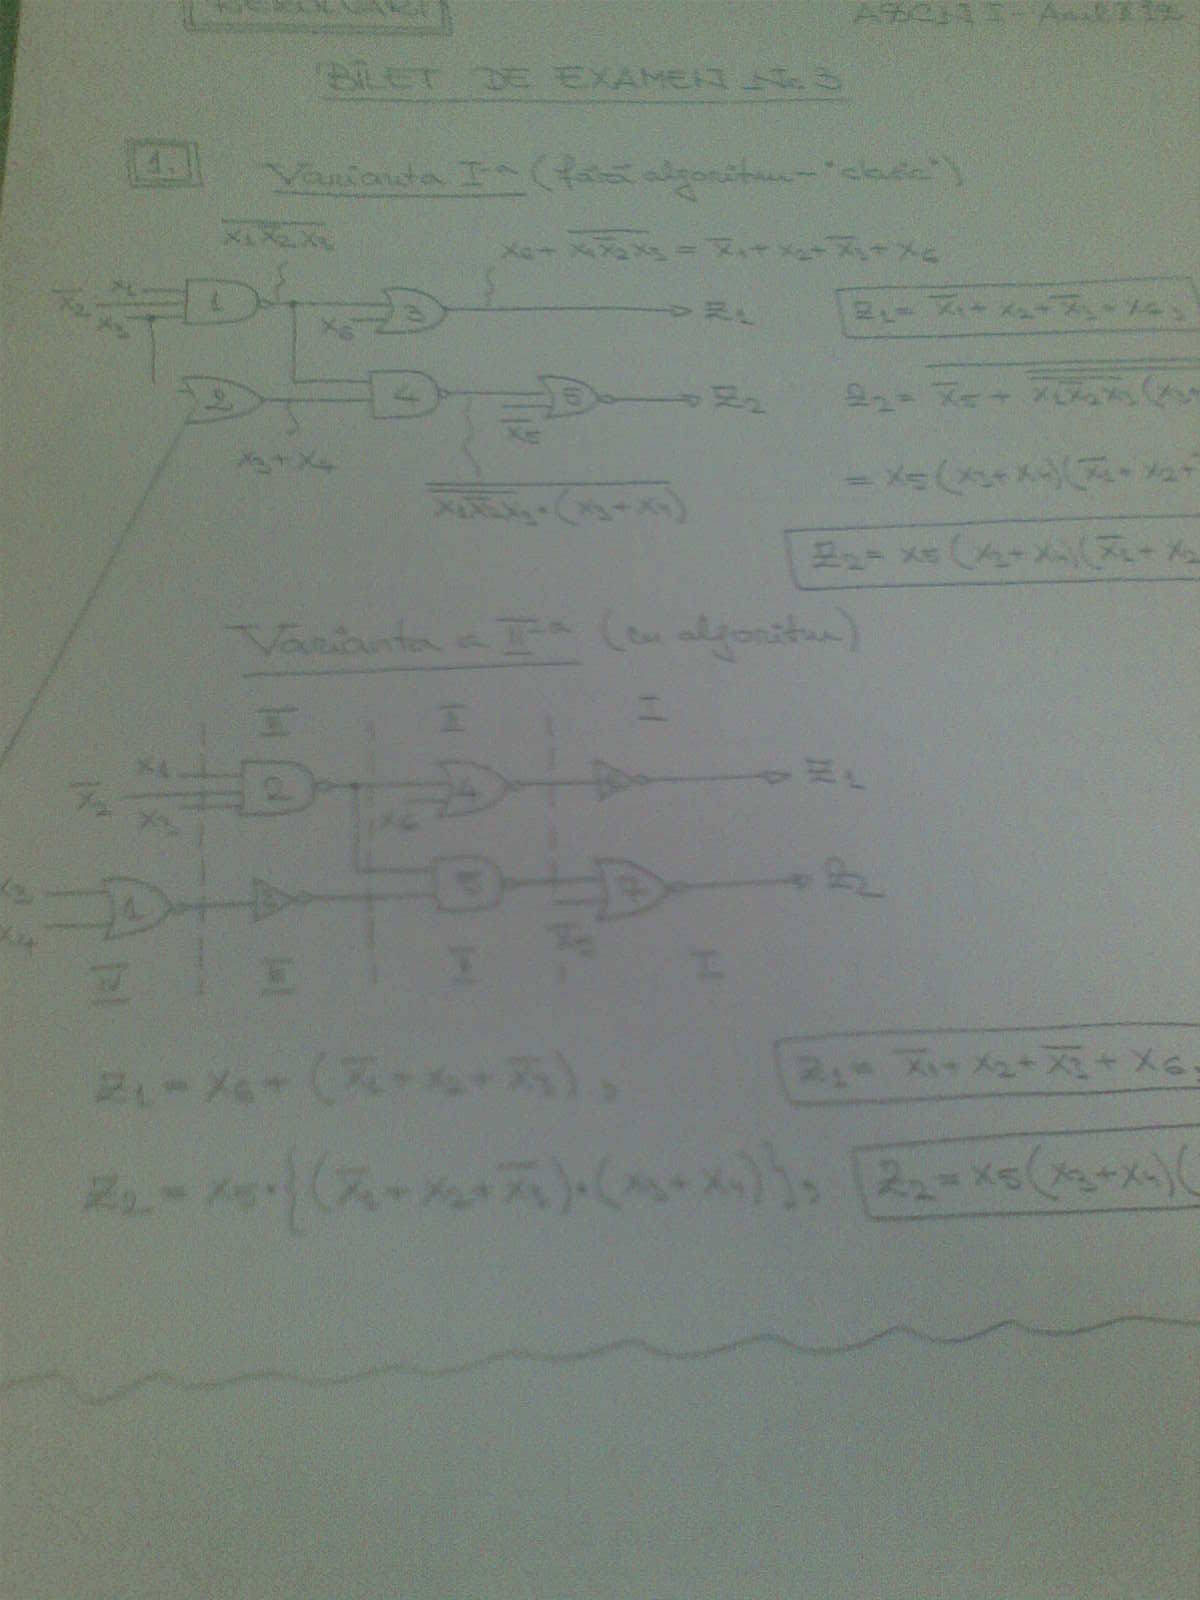 REZOLVĂRI
BILET DE EXAMEN Nr. 3
1.
Varianta I-a (fără algoritm - "clasic")
x̅1̅x̅̅2̅x̅3̅
x6 + x̅1̅x̅̅2̅x̅3̅ = x̅1 + x2 + x̅3 + x6
x1
x̅2
x3
1
x6
3
Z1
Z1 = x̅1 + x2 + x̅3 + x6 ;
2
4
5
x̅5
Z2
x3 + x4
x̅1̅x̅̅2̅x̅3̅ · (x3 + x4)
= x5 (x3 + x4)(x̅1 + x2 +
Z2 = x5 (x3 + x4)(x̅1 + x2
Varianta a II-a (cu algoritm)
III
II
I
x1
x̅2
x3
2
x6
4
6
Z1
x3
x4
1
3
5
x̅5
7
Z2
IV
III
II
I
Z1 = x6 + (x̅1 + x2 + x̅3) ;
Z1 = x̅1 + x2 + x̅3 + x6 ;
Z2 = x5 · {(x̅1 + x2 + x̅3) · (x3 + x4)} ;
Z2 = x5 (x3 + x4) (